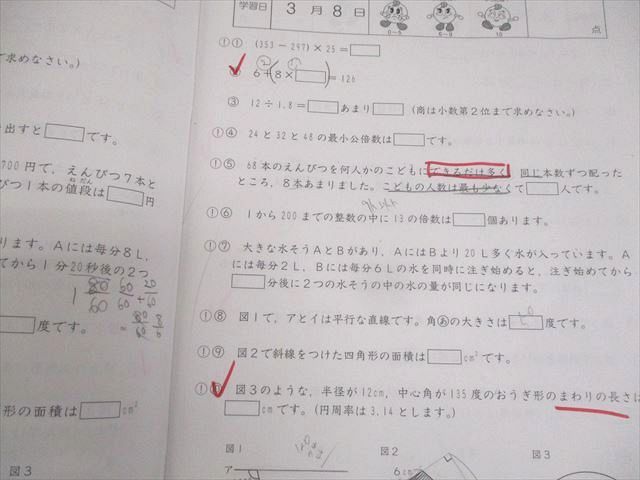 学習日 3月8日
0~5 6~9 10 点
で求めなさい。)
出すと です。
700円で,えんぴつ7本と
ぴつ1本の値段は 円
ねだん
ります。Aには毎分8L,
てから1分20秒後の2つ
度です。
形の面積は cm²
図3
①① (353-297)×25=
6+(8× )=126
③ 12÷1.8= あまり (商は小数第2位まで求めなさい。)
①④ 24と32と48の最小公倍数は です。
①⑤ 68本のえんぴつを何人かのこどもにできるだけ多く,同じ本数ずつ配った
ところ,8本あまりました。こどもの人数は最も少なくて 人です。
①⑥ 1から200までの整数の中に13の倍数は 個あります。
①⑦ 大きな水そうAとBがあり,AにはBより20L多く水が入っています。A
には毎分2L,Bには毎分6Lの水を同時に注ぎ始めると,注ぎ始めてから
分後に2つの水そうの中の水の量が同じになります。
①⑧ 図1で,アとイは平行な直線です。角あの大きさは 度です。
①⑨ 図2で斜線をつけた四角形の面積は cm²です。
図3のような,半径が12cm,中心角が135度のおうぎ形のまわりの長さは
cmです。(円周率は3.14とします。)
図1 図2 図3
ア 6cm